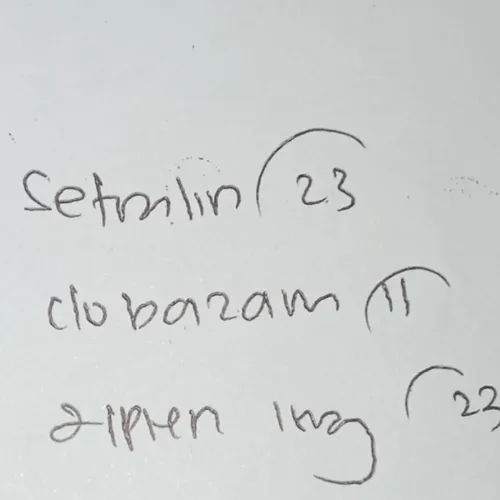 Setmilin (23
clobazam (11
zipren 1mg (23